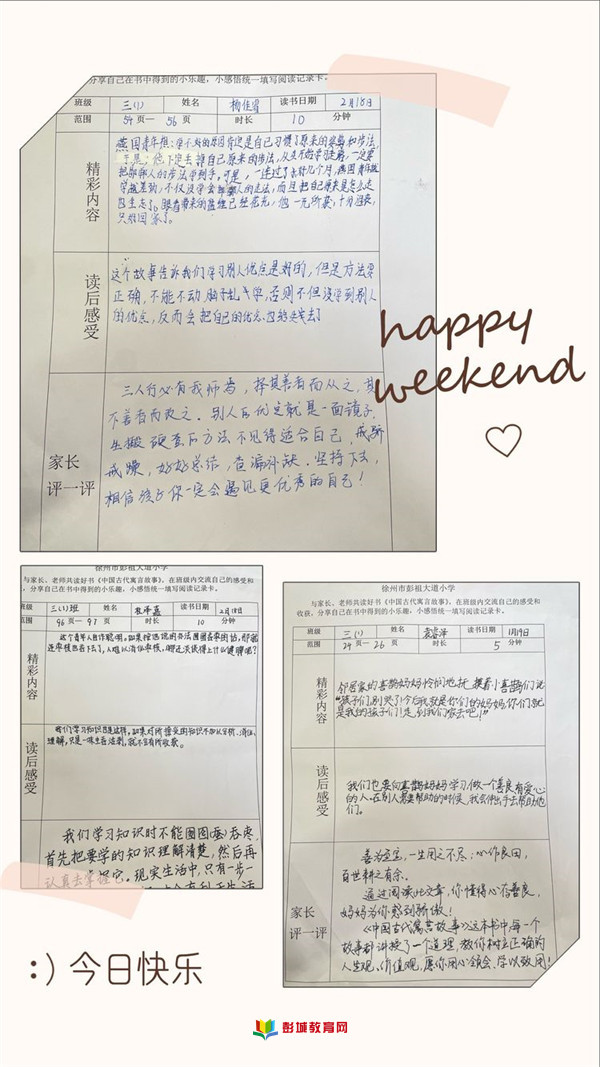 分享自己在书中得到的小乐趣，小感悟统一填写阅读记录卡。
班级 三(1) 姓名 读书日期 2月18日
范围 54页—56页 时长 10 分钟
精彩内容
燕国青年想：学不好的原因肯定是自己习惯了原来的姿势和步法，
于是，他下定决心丢掉自己原来的步法，从头开始学习走路，一定要
把邯郸人的步法学到手。可是，一连过了好几个月，燕国青年越
学越差劲，不仅没学会人的走法，而且把自己原来是怎么走
的也忘了。眼看带来的盘缠已经花光，他一无所获，十分沮丧，
只好回家了。
读后感受
这个故事告诉我们学习别人优点是好的，但是方法要
正确，不能不动脑子乱学，否则不但没学到别人
的优点，反而会把自己的优点也给丢了
家长
评一评
三人行必有我师焉，择其善者而从之，其
不善者而改之。别人的优点就是一面镜子，
生搬硬套的方法不见得适合自己，戒骄
戒躁，好好总结，查漏补缺。坚持下去，
相信孩子你一定会遇见更优秀的自己！
happy
weekend
徐州市彭祖大道小学
与家长、老师共读好书《中国古代寓言故事》，在班级内交流自己的感受和
，分享自己在书中得到的小乐趣，小感悟统一填写阅读记录卡。
班级 三(1)班 姓名 读书日期 2月18日
范围 96页—97页 时长 10
精彩内容
这个青年人自作聪明，如果按他说的办法囫囵吞枣的话，那就
连枣核也吞下去了，人难以消化枣核，哪还谈得上什么健脾呢？
读后感受
我们学习知识也是这样，如果对所接受的知识不加以分析、消化、
理解，只是一味生吞活剥，就不会有所收获。
我们学习知识时不能囫囵(卷)吞枣，
首先把要学的知识理解清楚，然后再
认真去掌握它。现实生活中，只有一步一
徐州市彭祖大道小学
与家长、老师共读好书《中国古代寓言故事》，在班级内交流自己的感受和
收获，分享自己在书中得到的小乐趣，小感悟统一填写阅读记录卡。
班级 三(1) 姓名 读书日期 1月19日
范围 24页—26页 时长 5 分钟
精彩内容
邻居家的喜鹊妈妈怜悯地抚摸着小喜鹊们说
“孩子们别哭了！今后我就是你们的妈妈，你们就
是我的孩子们！走，到我们家去吧！”
读后感受
我们也要向喜鹊妈妈学习做一个善良有爱心
的人。在别人需要帮助的时候，我会伸出手去帮助他
们。
家长
评一评
善为至宝，一生用之不尽；心作良田，
百世耕之有余。
通过阅读此文章，你懂得心存善良，
妈妈为你感到骄傲！
《中国古代寓言故事》这本书中每一个
故事都讲授了一个道理，教你树立正确的
人生观、价值观，愿你用心领会、学以致用！
:) 今日快乐
彭城教育网